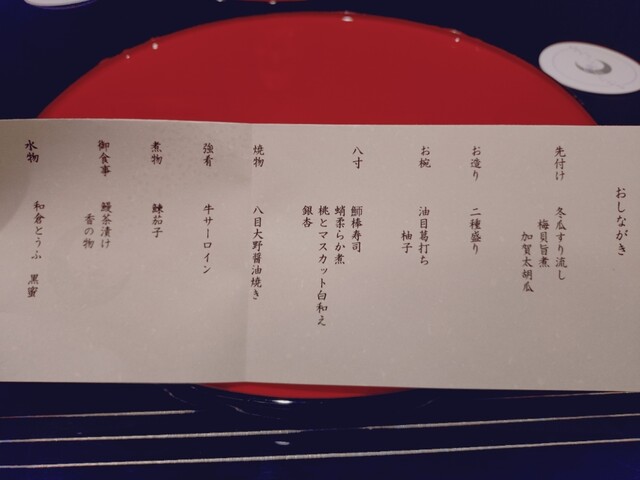 おしながき
先付け 冬瓜すり流し
梅貝旨煮
加賀太胡瓜
お造り 二種盛り
お椀 油目葛打ち
柚子
八寸 鰤棒寿司
蛸柔らか煮
桃とマスカット白和え
銀杏
焼物 八目大野醤油焼き
強肴 牛サーロイン
煮物 鰊茄子
御食事 鰻茶漬け
香の物
水物 和倉とうふ 黒蜜